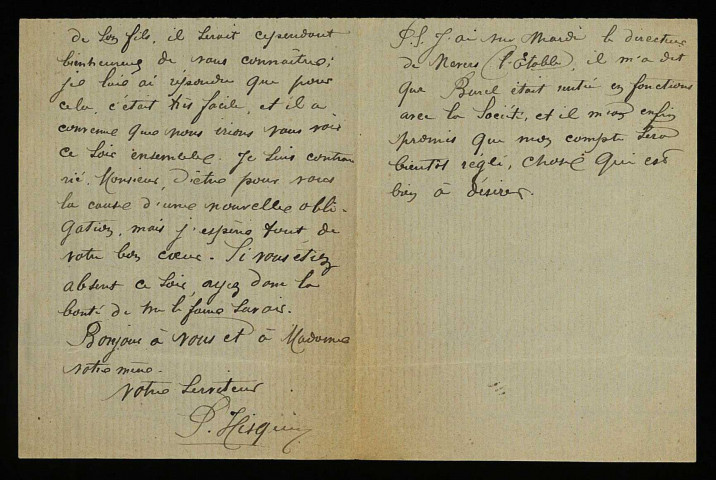 de son fils, il serait cependant
bienheureux de vous connaître;
je lui ai répondu que pour
cela, c'était très facile, et il a
convenu que nous irions vous voir
ce soir ensemble. Je suis contra
rié, Monsieur, d'être pour vous
la cause d'une nouvelle obli-
gation, mais j'espère tout de
votre bon cœur. Si vous étiez
absent ce soir, ayez donc la
bonté de me le faire savoir.
Bonjour à vous et à Madame
votre mère.
Votre serviteur
P. Hesquin
P.S. J'ai vu Mardi le directeur
de (l'Etoble), il m'a dit
que Burel était entré en fonctions
avec la Société, et il m'a enfin
promis que mon compte sera
bientôt réglé, chose qui est
bien à désirer.